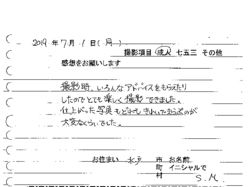 2019年 7月 1日(月)
撮影項目 成人 七五三 その他
感想をお願いします
撮影時、いろんなアドバイスをもらえたり
したのでとても楽しく撮影できました。
仕上がった写真もどれもきれいで
大変なくらいでした。
お住まい 水戸 市 お名前
町 イニシャルで
村 S.M